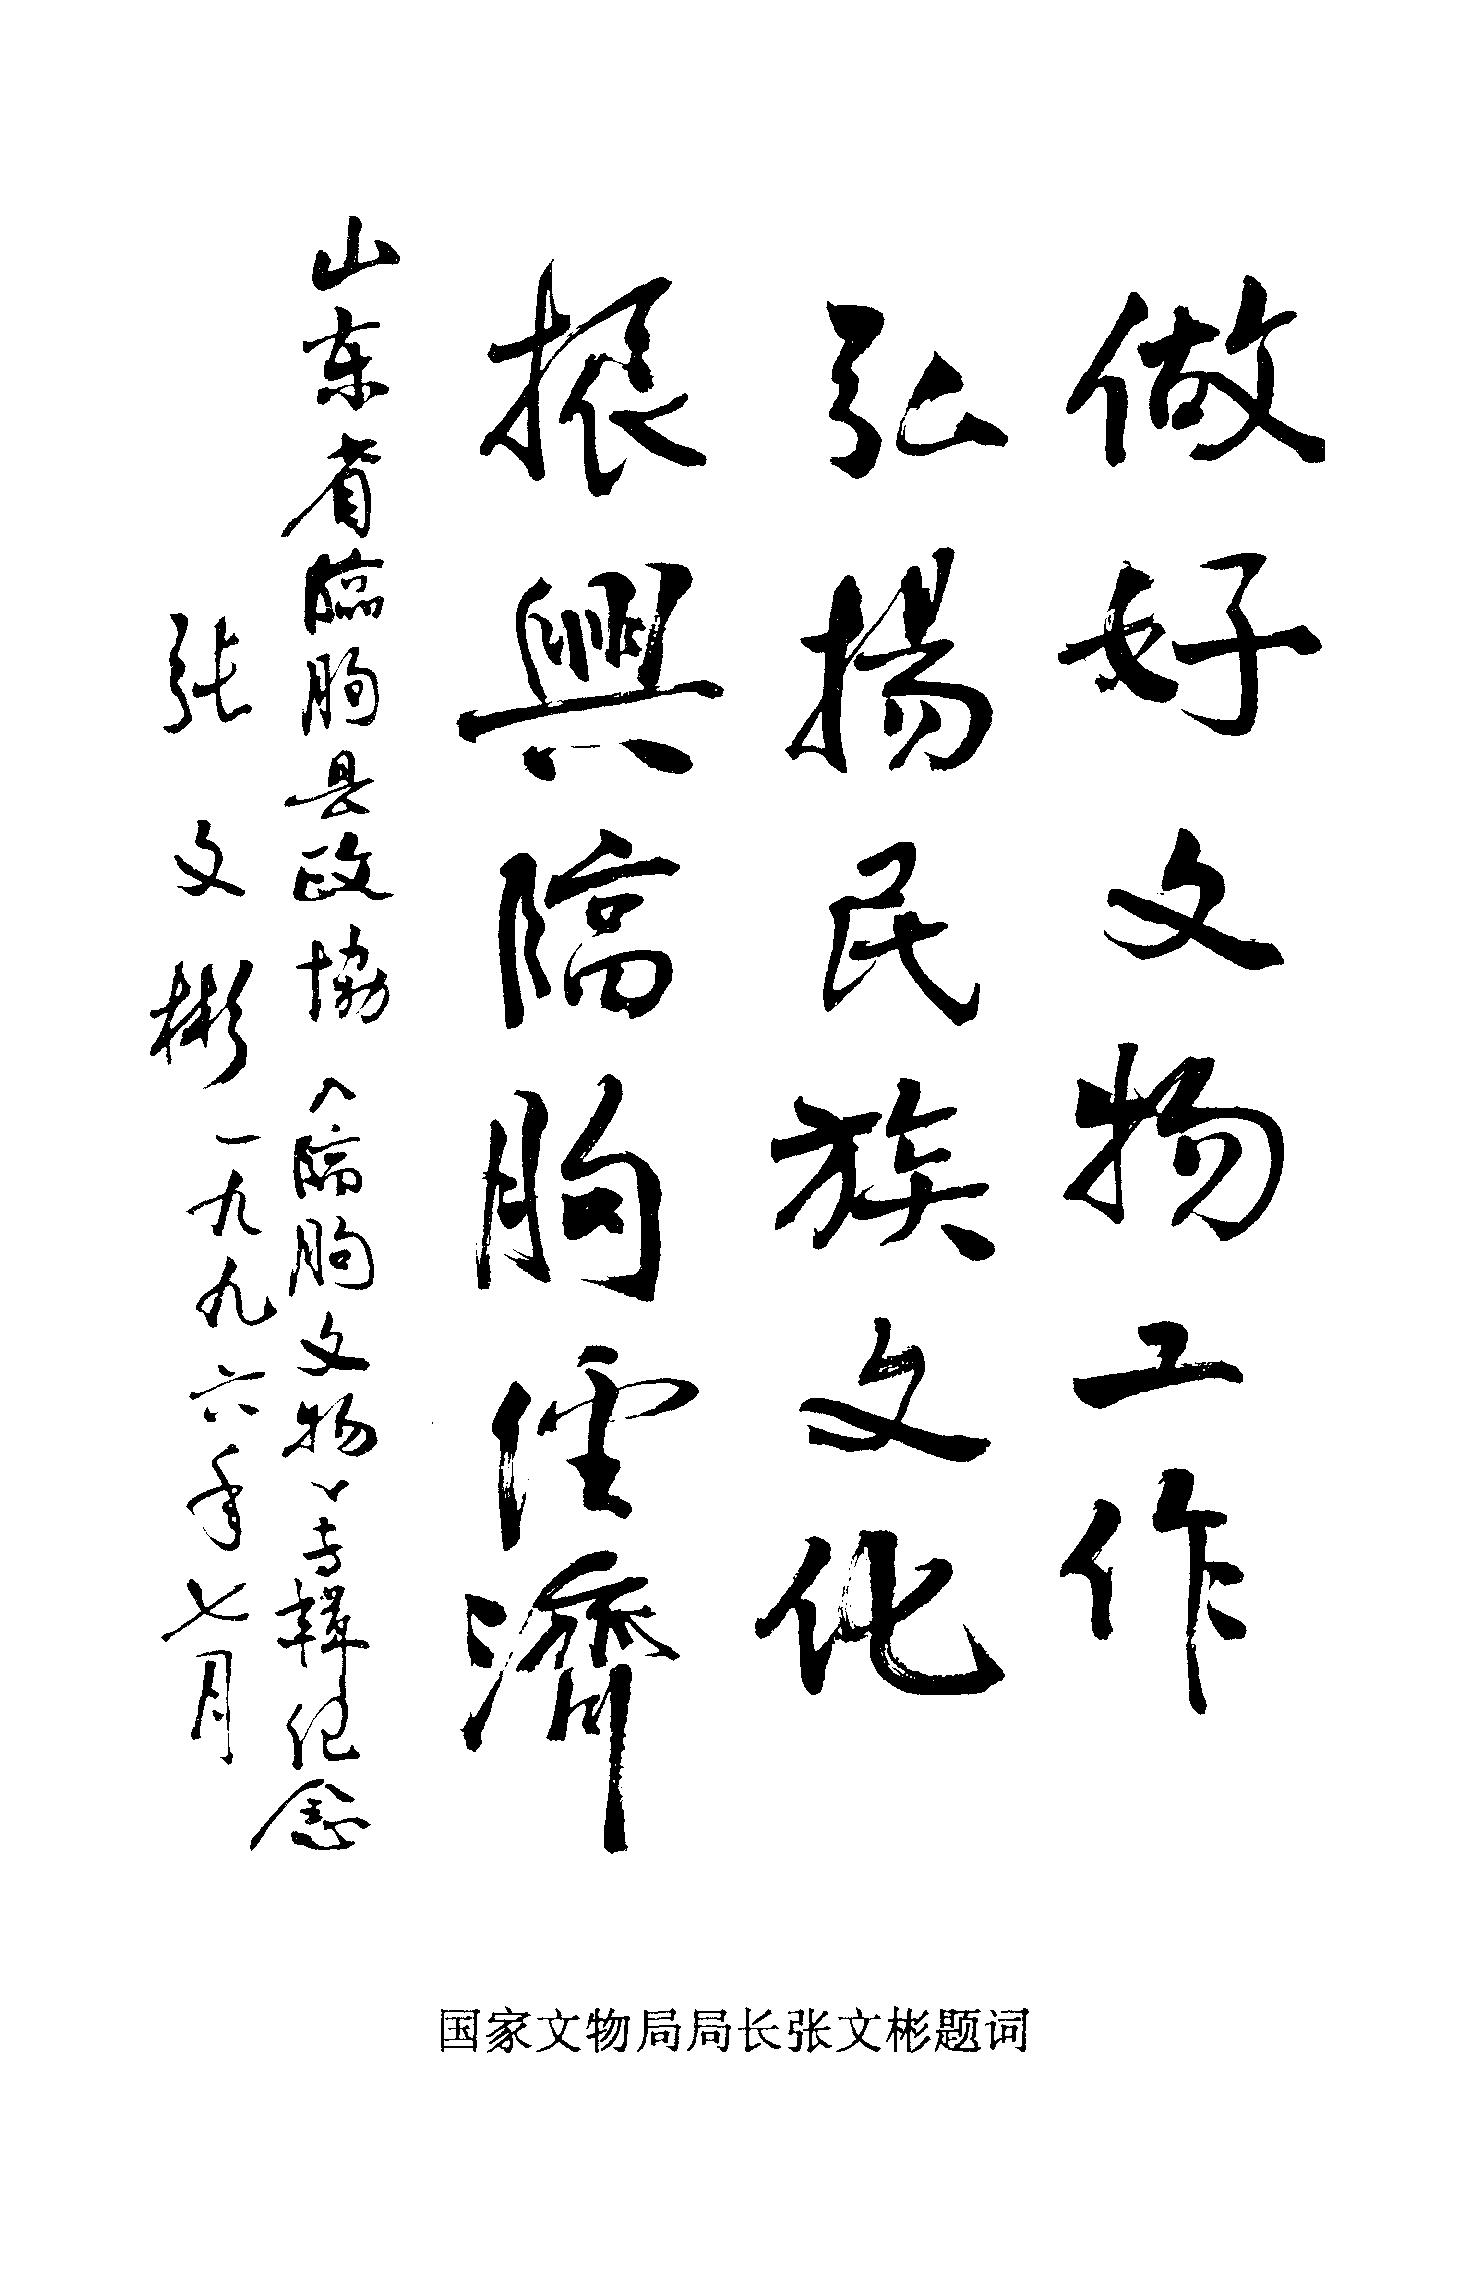 做好文物工作
弘揚民族文化
振興臨朐經濟
山东省臨朐县政協《臨朐文物》专輯纪念
张文彬一九九六年七月
国家文物局局长张文彬题词